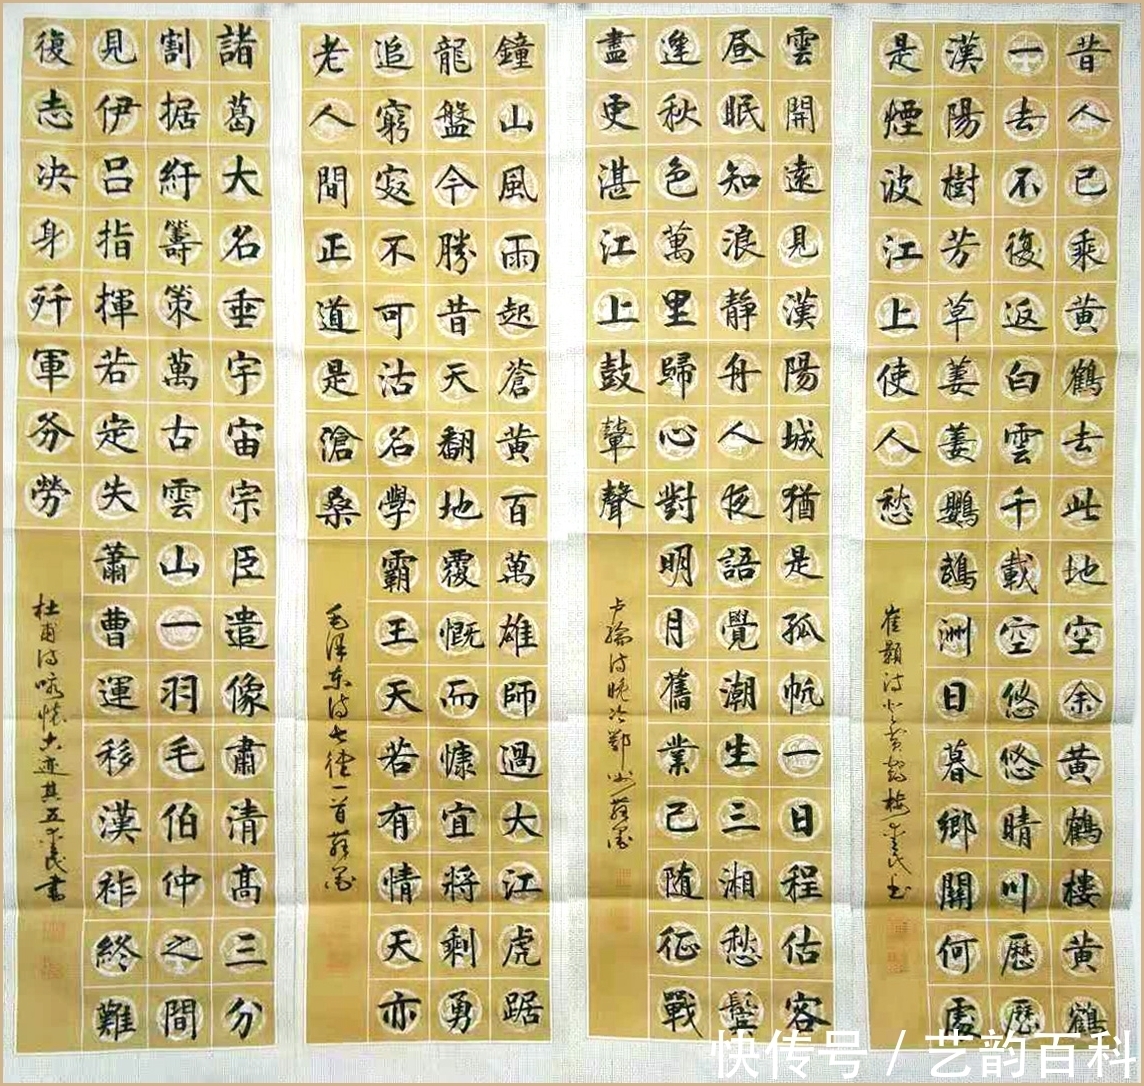 昔人已乘黃鶴去此地空余黃鶴樓黃鶴
一去不復返白雲千載空悠悠晴川歷歷
漢陽樹芳草萋萋鸚鵡洲日暮鄉關何處
是煙波江上使人愁
崔顥诗登黄鹤楼
雲開遠見漢陽城猶是孤帆一日程估客
昼眠知浪靜舟人夜語覺潮生三湘愁鬢
逢秋色萬里歸心對明月舊業已随征戰
盡更湛江上鼓鼙聲
卢纶诗晚次鄂州
鐘山風雨起蒼黄百萬雄師過大江虎踞
龍盤今勝昔天翻地覆慨而慷宜將剩勇
追窮寇不可沽名學霸王天若有情天亦
老人間正道是滄桑
毛泽东诗七律一首
諸葛大名垂宇宙宗臣遺像肅清高三分
割据紆籌策萬古雲山一羽毛伯仲之間
見伊呂指揮若定失蕭曹運移漢祚終難
復志决身歼軍务勞
杜甫诗咏怀古迹其五
快传号 / 艺韵百科